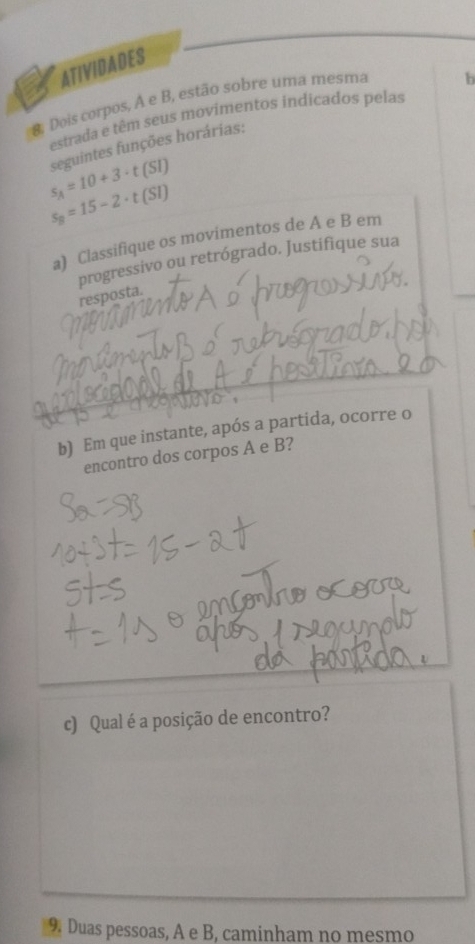 ATIVIDADES
8. Dois corpos, A e B, estão sobre uma mesma
estrada e têm seus movimentos indicados pelas
seguintes funções horárias:
sA = 10 + 3 · t (SI)
sB = 15 – 2 · t (SI)
a) Classifique os movimentos de A e B em
progressivo ou retrógrado. Justifique sua
resposta.
movimento A é progressivo.
movimento B é retrógrado, pois
a velocidade de A é positiva e a
de B é negativo.
b) Em que instante, após a partida, ocorre o
encontro dos corpos A e B?
Sa = SB
10+3t = 15 - 2t
5t=5
t = 1s o encontro ocorre
após 1 segundo
da partida.
c) Qual é a posição de encontro?
9. Duas pessoas, A e B, caminham no mesmo
b